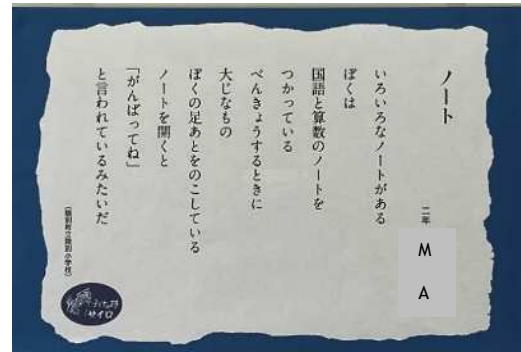 ノート
二年
M
A
いろいろなノートがある
ぼくは
国語と算数のノートを
つかっている
べんきょうするときに
大じなもの
ぼくの足あとをのこしている
ノートを開くと
「がんばってね」
と言われているみたいだ
サイロ